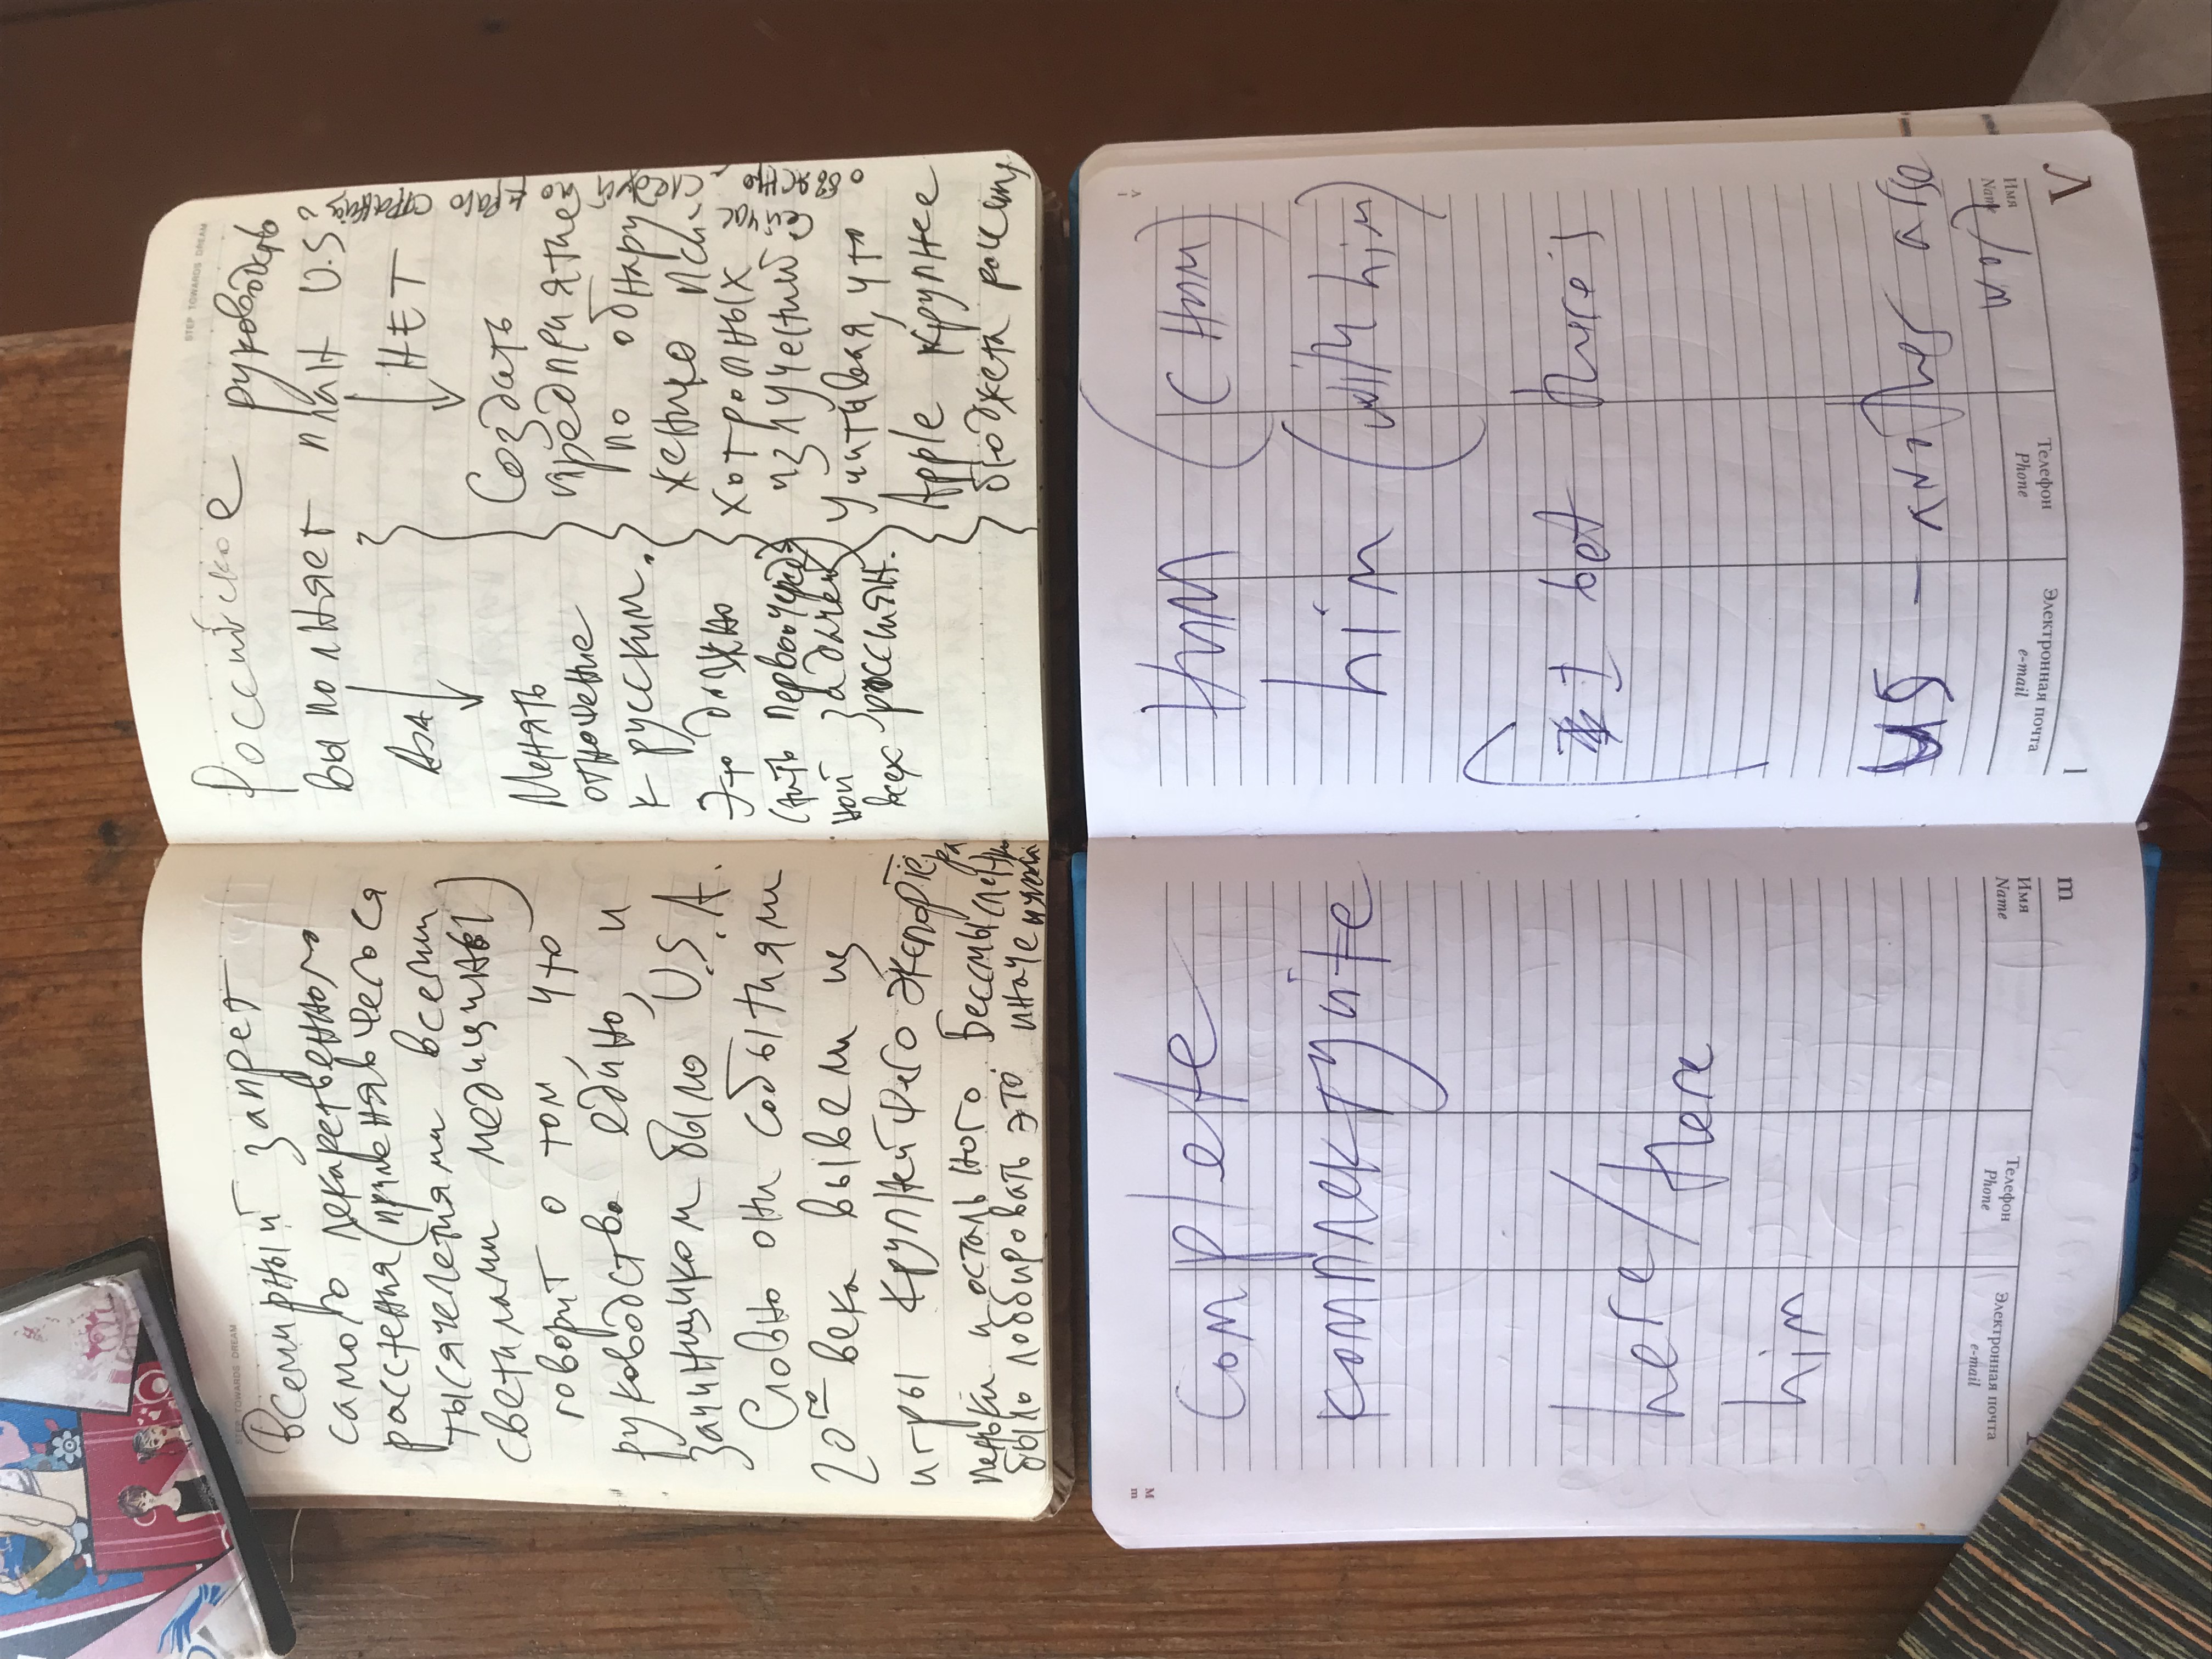 STEP TOWARDS DREAM
Всемирный запрет
самого лекаретвенного
расстения (применявчегося
тысячелетиями всеми
светилами медицины)
говорит о том, что
руководство едино, и
зачинщиком было U.S.A.
Словно они событиями
20го века вывели из
игры крупнейшего экспортёра
пеньки и остального. Бессмысленно
было лоббировать это иначе
STEP TOWARDS DREAM
Российское руководство
выполняет план U.S?
ДА
НЕТ
Менять
отношение
к русским.
Это должно
стать первоочеред
ной задачей
всех россиян.
Создать
предприятие
по обнару
жению пси
хотропных
излучений
Учитывая, что
Apple крупнее
бюджета россии
Сейчас объясню, следуй по краю страницы
complete
комплектуйте
here/there
him
Электронная почта
e-mail
Телефон
Phone
Имя
Name
m
Ним (с ним)
him (with him)
I bet there's
US - another arse
Электронная почта
e-mail
Телефон
Phone
Имя
Name
l
Л